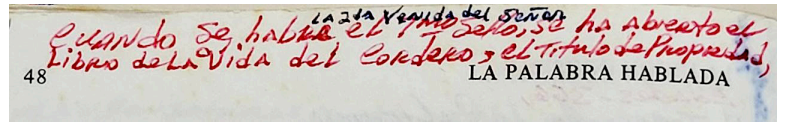 La 2da Venida del Señor
Cuando se habre el 7mo Sello, se ha abierto el
Libro de la Vida del Cordero, el Título de Propiedad,
48 LA PALABRA HABLADA